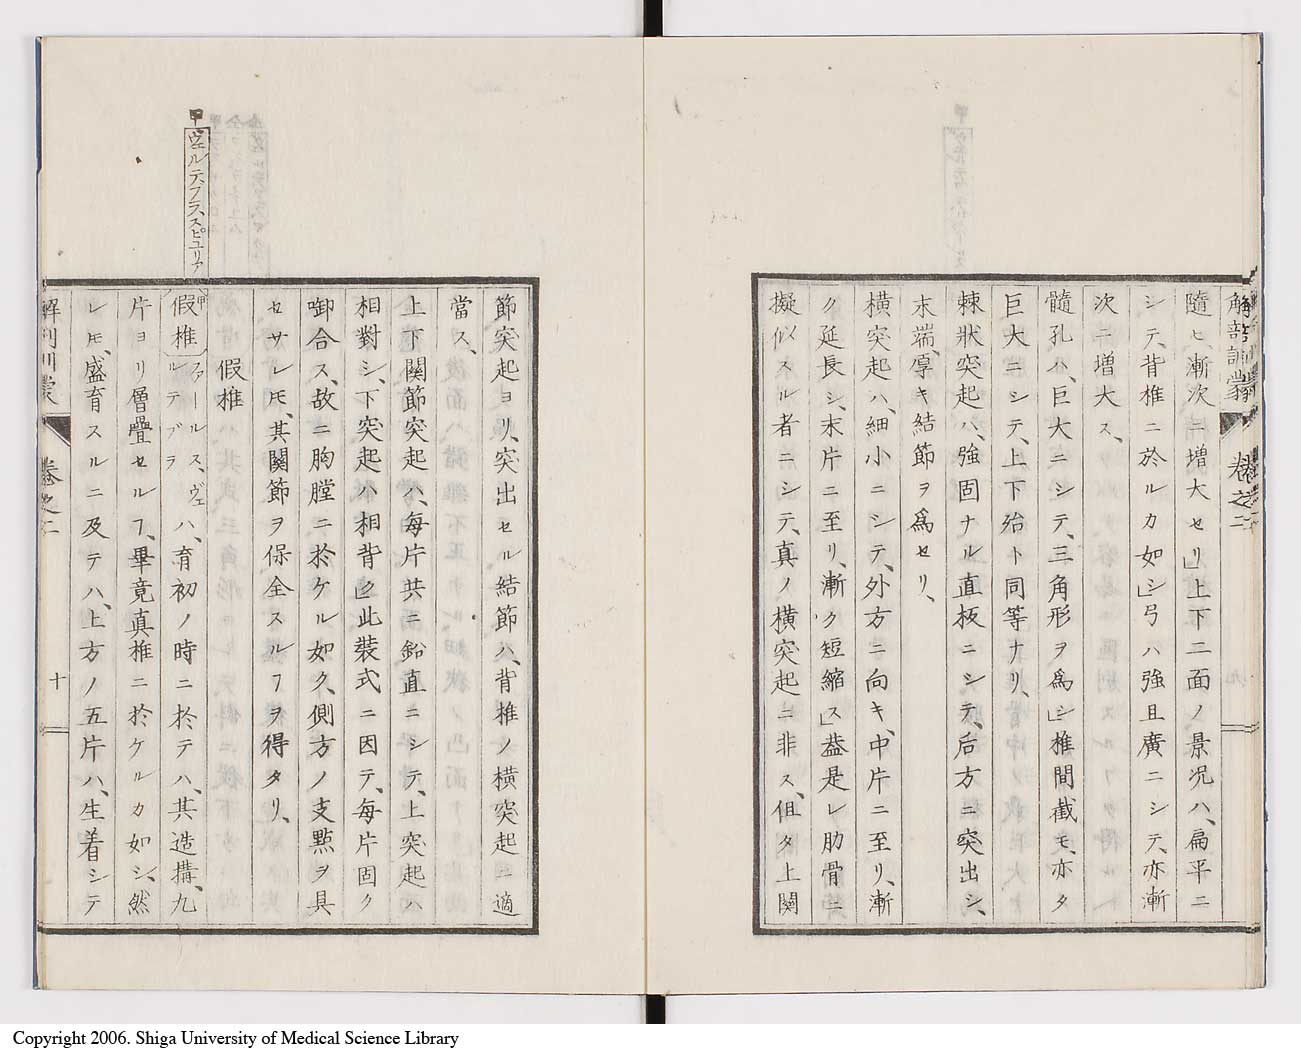 解剖訓蒙
卷之二
隨ヒ、漸次ニ増大セリ」上下二面ノ景况ハ、扁平ニ
シテ、背椎ニ於ルカ如シ」弓ハ強且廣ニシテ、亦漸
次ニ増大ス、
髓孔ハ、巨大ニシテ、三角形ヲ爲シ」椎間截モ、亦タ
巨大ニシテ、上下殆ト同等ナリ、
棘狀突起ハ、強固ナル直板ニシテ、后方ニ突出シ、
末端、厚キ結節ヲ爲セリ、
横突起ハ、細小ニシテ、外方ニ向キ、中片ニ至リ、漸
ク延長シ、末片ニ至リ、漸ク短縮ス」葢是レ肋骨ニ
擬似スル者ニシテ、真ノ横突起ニ非ス、但タ上関
節突起ヨリ、突出セル結節ハ、背椎ノ横突起ニ適
當ス、
上下関節突起ハ、毎片共ニ鉛直ニシテ、上突起ハ
相對シ、下突起ハ相背ク」此装式ニ因テ、毎片固ク
啣合ス、故ニ胸膛ニ於ケル如ク、側方ノ支㸃ヲ具
セサレモ、其関節ヲ保全スルヿヲ得タリ、
假椎
甲
ヴェルテブラ、スピュリア
甲
假椎
ファールス、ヴェ
ルテブラ
ハ、育初ノ時ニ於テハ、其造搆、九
片ヨリ層疊セルヿ、畢竟真椎ニ於ケルカ如シ、然
レモ、盛育スルニ及テハ、上方ノ五片ハ、生着シテ
解剖訓蒙
卷之二
十
Copyright 2006. Shiga University of Medical Science Library